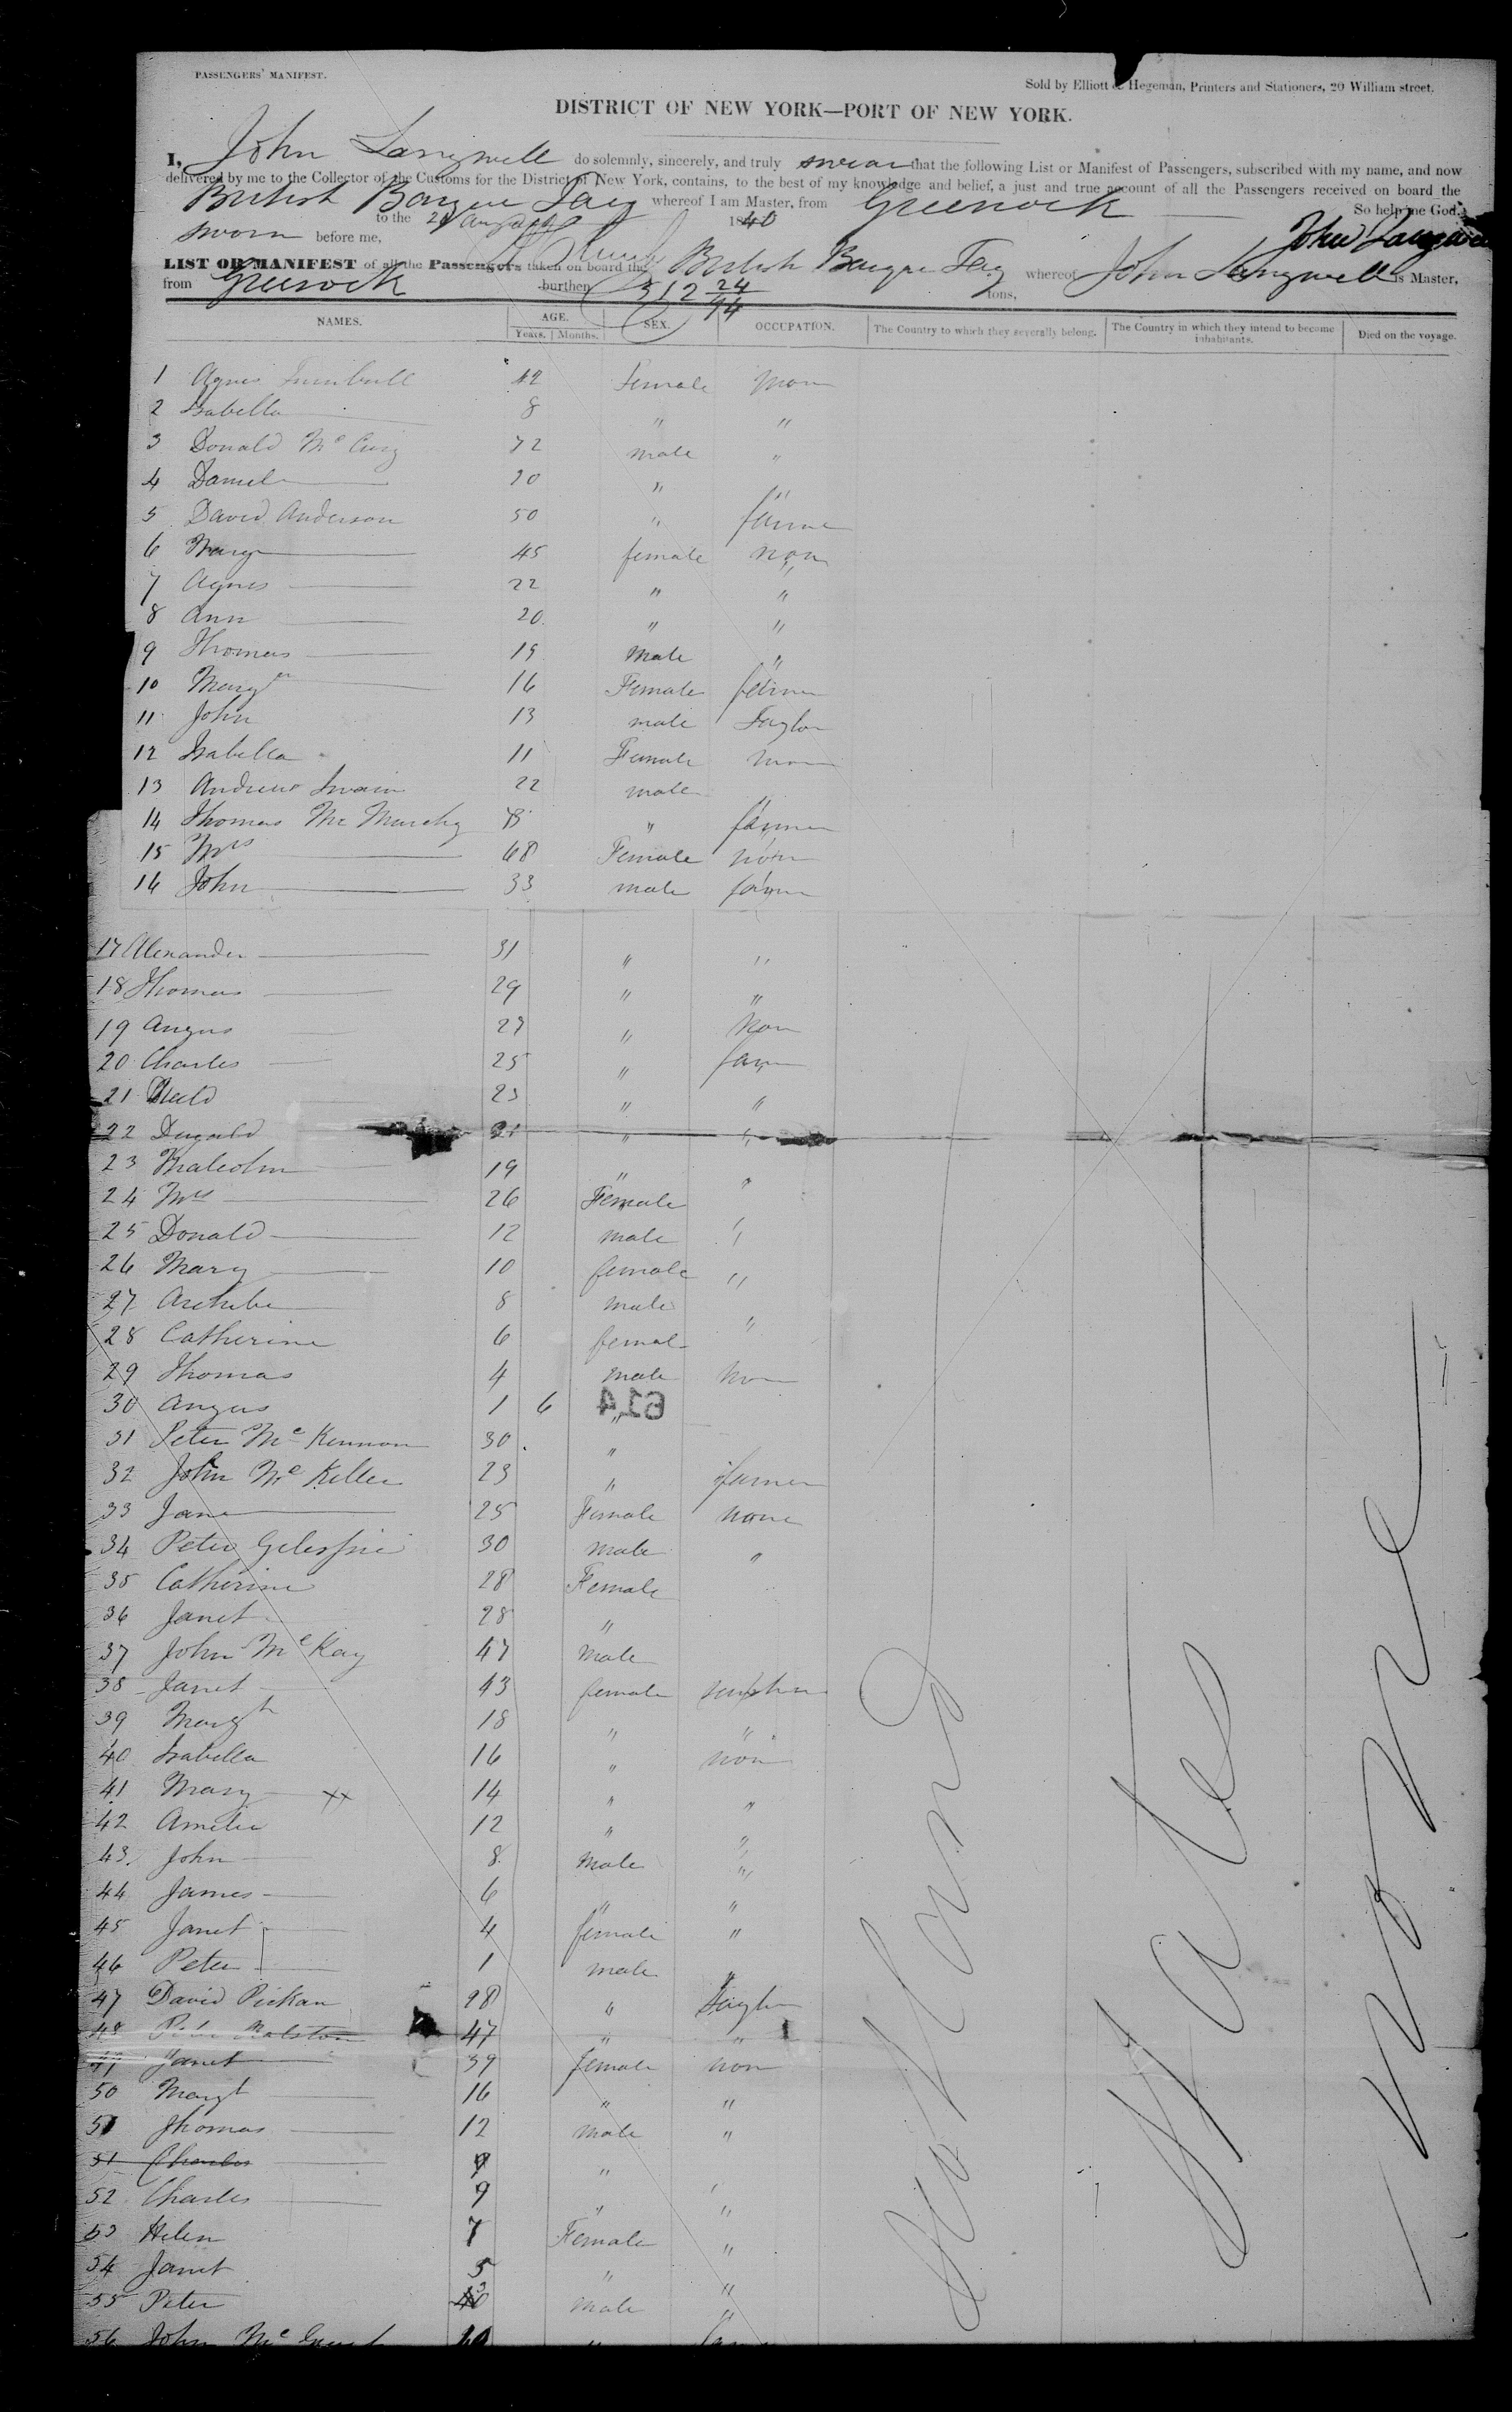 PASSENGERS' MANIFEST.
Sold by Elliott & Hegeman, Printers and Stationers, 20 William street.
DISTRICT OF NEW YORK—PORT OF NEW YORK.
I, John Langwill do solemnly, sincerely, and truly swear that the following List or Manifest of Passengers, subscribed with my name, and now
delivered by me to the Collector of the Customs for the District of New York, contains, to the best of my knowledge and belief, a just and true account of all the Passengers received on board the
British Barque Tay whereof I am Master, from Greenock
to the 1840 So help me God.
Sworn before me, John Langwill
LIST OR MANIFEST of all the Passengers taken on board the British Barque Tay whereof John Langwill is Master,
from Greenock burthen 312 24/94 tons,
NAMES. AGE. SEX. OCCUPATION. The Country to which they severally belong. The Country in which they intend to become inhabitants. Died on the voyage.
Years. Months.
1 Agnes Turnbull 42 Female Non
2 Isabella 8 " "
3 Donald Mc 72 male "
4 Daniel 20 " "
5 David Anderson 50 " farmer
6 Mary 45 female non
7 Agnes 22 " "
8 Ann 20 " "
9 Thomas 19 Male "
10 Margt 16 Female
11 John 13 male Taylor
12 Isabella 11 Female non
13 Andrew Swain 22 male
14 Thomas Mc Murchy " farmer
15 Mrs 68 Female non
16 John 33 male farmer
17 Alexander 31 " "
18 Thomas 29 " "
19 Angus 27 " Non
20 Charles 25 " farm
21 23 " "
22 Dugald 21 " "
23 Malcolm 19 " "
24 Mrs 26 Female
25 Donald 12 male "
26 Mary 10 female "
27 Archibe 8 male
28 Catherine 6 femal "
29 Thomas 4 male non
30 Angus 1 6 "
614
31 Peter Mc Kinnon 30 "
32 John Mc Keller 23 " farmer
33 Jane 25 Female none
34 Peter Gilespie 30 male "
35 Catherine 28 Female
36 Janet 28 "
37 John McKay 47 Male
38 Janet 43 female
39 Margt 18 " "
40 Isabella 16 " non
41 Mary xx 14 " "
42 Amelia 12 " "
43 John 8 Male "
44 James 6 " "
45 Janet 4 female "
46 Peter 1 male "
47 David Pickan 28 " Taylor
48 Peter Ralston 47 " "
49 Janet 39 female non
50 Margt 16 " "
51 Thomas 12 male "
51 Charles 9 "
52 Charles 9 " "
53 Helen 7 Female "
54 Janet 5 " "
55 Peter male "
56 John Mc "
Scotland
State
None